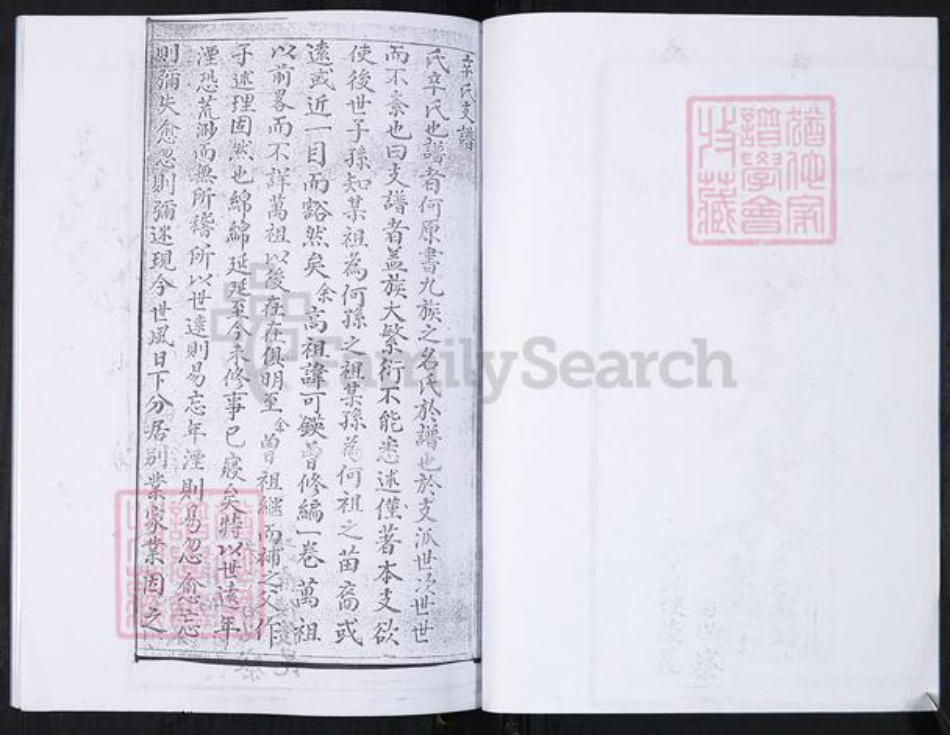 辛氏支譜
氏辛氏也譜者何原書九族之名氏於譜也於支派世次世世
而不紊也曰支譜者盖族大繁衍不能悉述僅著本支欲
使後世子孫知某祖為何孫之祖某孫為何祖之苗裔或
遠或近一目而豁然矣余高祖諱可鍈曾修編一卷萬祖
以前畧而不詳萬祖以後在在俱明至余曾祖繼而補之父作
子述理固然也綿綿延延至今未修事已寢矣特以世遠年
湮恐荒渺而無所稽所以世遠則易忘年湮則易忽愈忘
則彌失愈忽則彌迷現今世風日下分居別業家業因之
猶他家
譜學會
收藏
FamilySearch